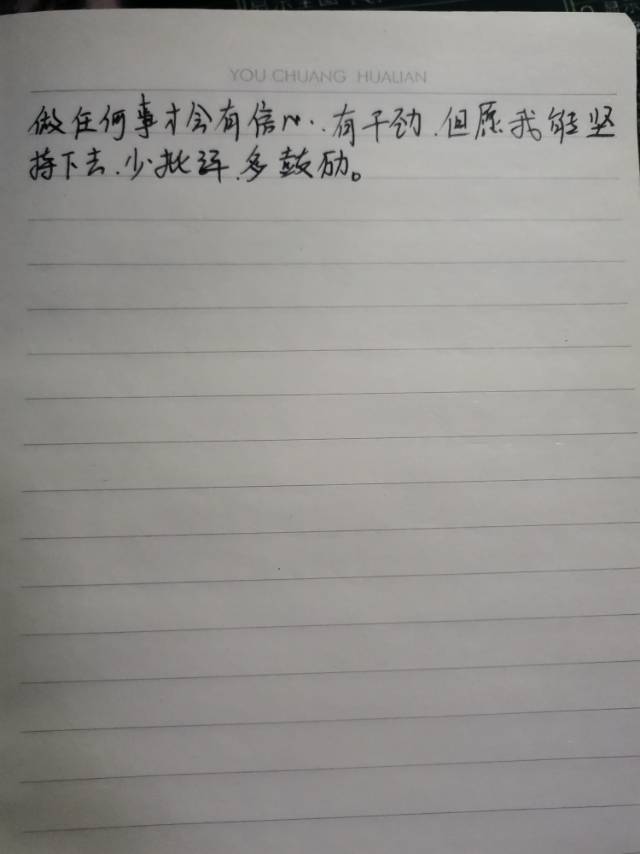 YOU CHUANG HUALIAN
做任何事才会有信心.有干劲.但愿我能坚
持下去.少批评.多鼓励。